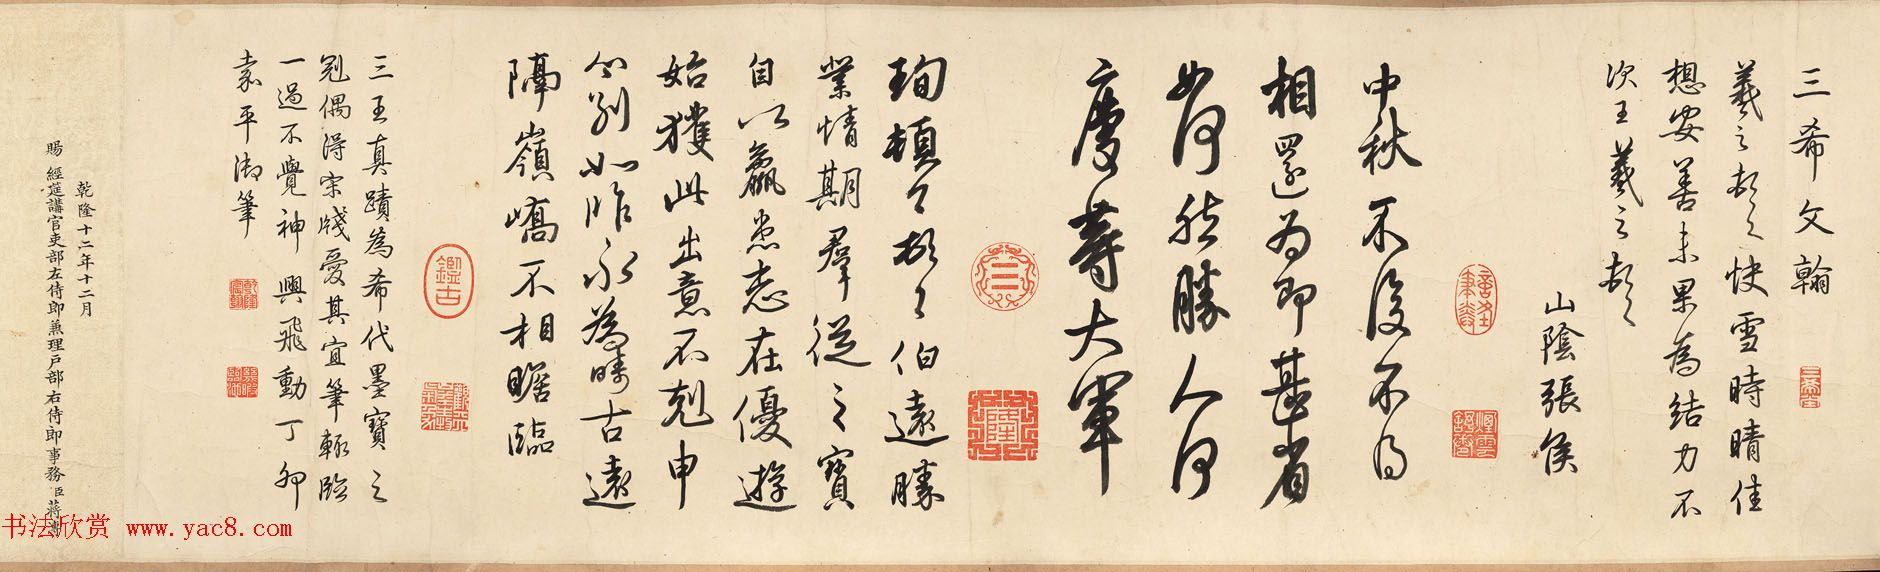 三希文翰
羲之頓首快雪時晴佳
想安善未果為結力不
次王羲之頓首
山陰張侯
中秋不復不得
相還為即甚省
如何然勝人何
慶等大軍
珣頓首頓首伯遠勝
業情期群從之寶
自以羸患志在優遊
始獲此出意不剋申
分別如昨永為疇古遠
隔嶺嶠不相瞻臨
三王真蹟為希代墨寶之
冠偶得宋牋愛其宜筆輒臨
一過不覺神興飛動丁卯
嘉平御筆
乾隆十二年十二月
賜 經筵講官吏部左侍郎兼理戶部右侍郎事務臣蔣
鑑古
書法欣赏 www.yac8.com